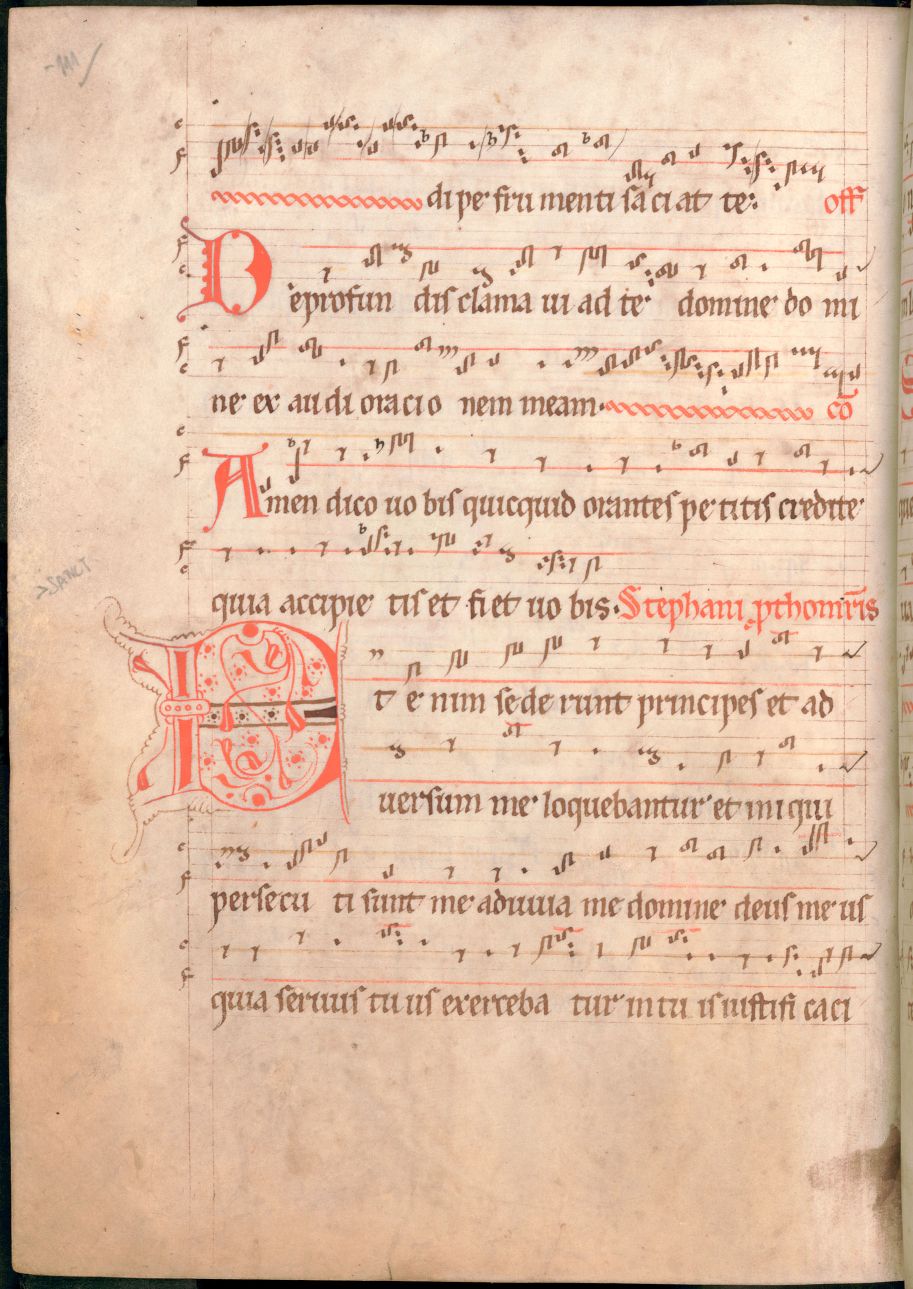 di pe fru menti sa ci at te: off
De profun dis clama ui ad te domine do mi
ne ex au di oracio nem meam. cō
Amen dico uo bis quicquid orantes pe titis credite
quia accipie tis et fi et uo bis. Stephani
Et e nim se de runt principes et ad
uersum me loquebantur et iniqui
persecu ti sunt me adiuua me domine deus me us
quia seruus tu us exerceba tur in tu is iustifi caci